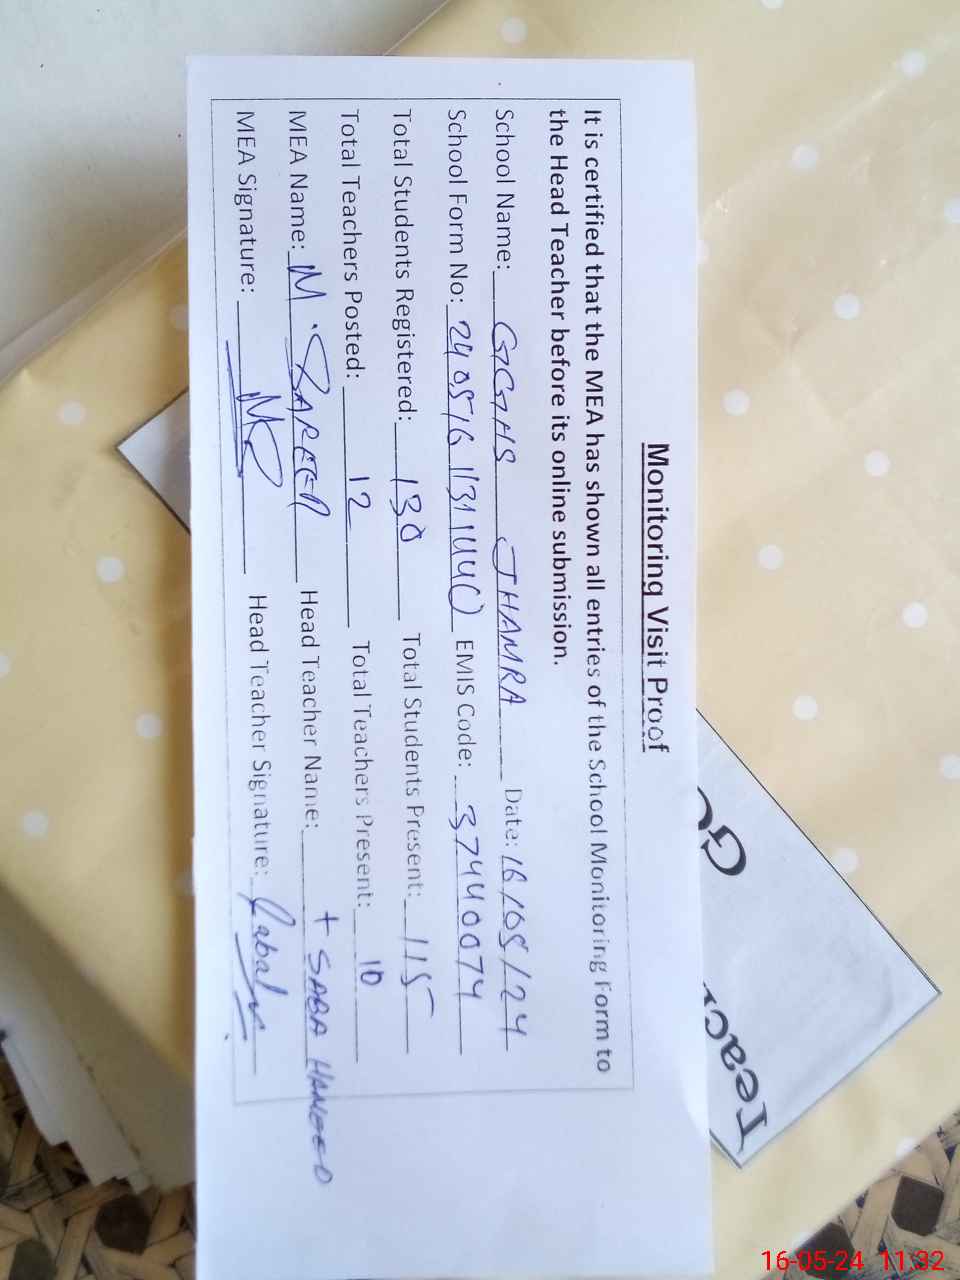 Monitoring Visit Proof
It is certified that the MEA has shown all entries of the School Monitoring Form to
the Head Teacher before its online submission.
School Name: GGHS JHAMRA Date: 16/05/24
School Form No: EMIS Code: 37440074
Total Students Registered: 130 Total Students Present: 115
Total Teachers Posted: 12 Total Teachers Present: 10
MEA Name: M. Head Teacher Name: + SABA HAMEED
MEA Signature: Head Teacher Signature:
GO
Teac
16-05-24 11:32